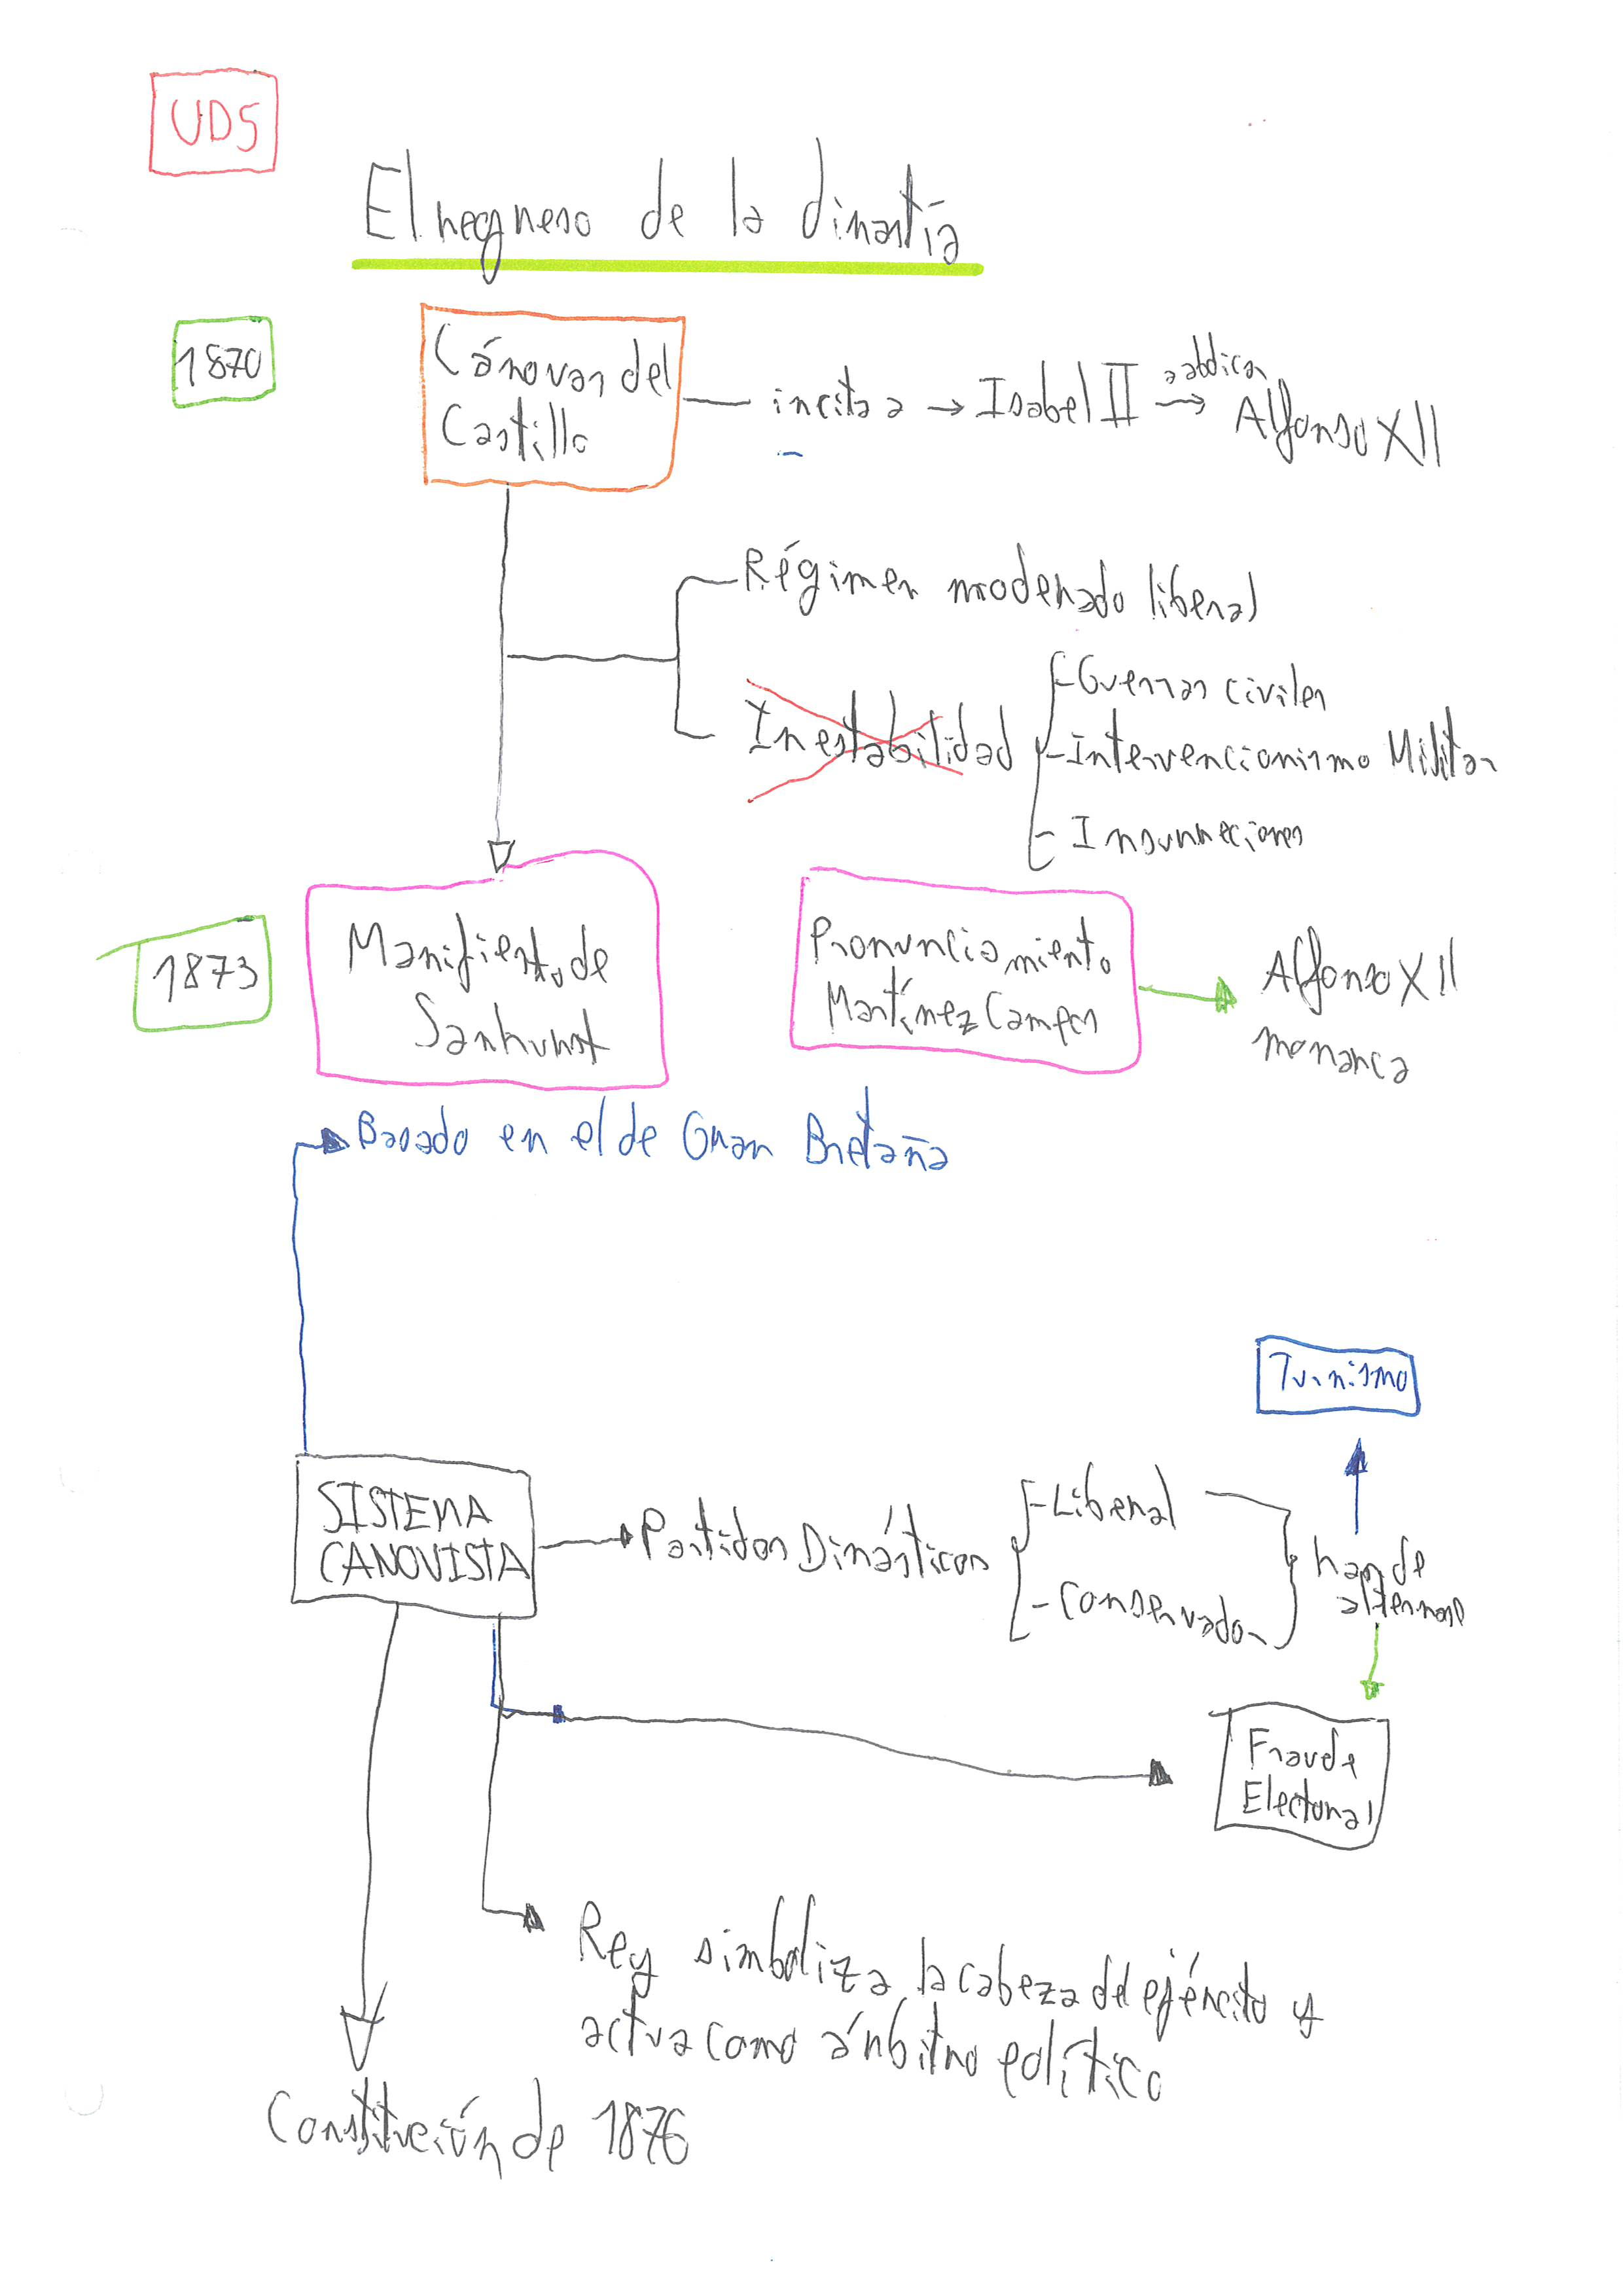 UD5
El regreso de la dinastía
1870
Cánovas del
Castillo
incita a → Isabel II → Alfonso XII
a abdicar
Régimen moderado liberal
Inestabilidad
- Guerras civiles
- Intervencionismo Militar
- Insurrecciones
1873
Manifiesto de
Sanhurst
Pronunciamiento
Martínez Campos
Alfonso XII
monarca
Basado en el de Gran Bretaña
Turnismo
SISTEMA
CANOVISTA
Partidos Dinásticos
- Liberal
- Conservador
han de
alternarse
Fraude
Electoral
Rey simboliza la cabeza del ejército y
actua como árbitro político
Constitución de 1876